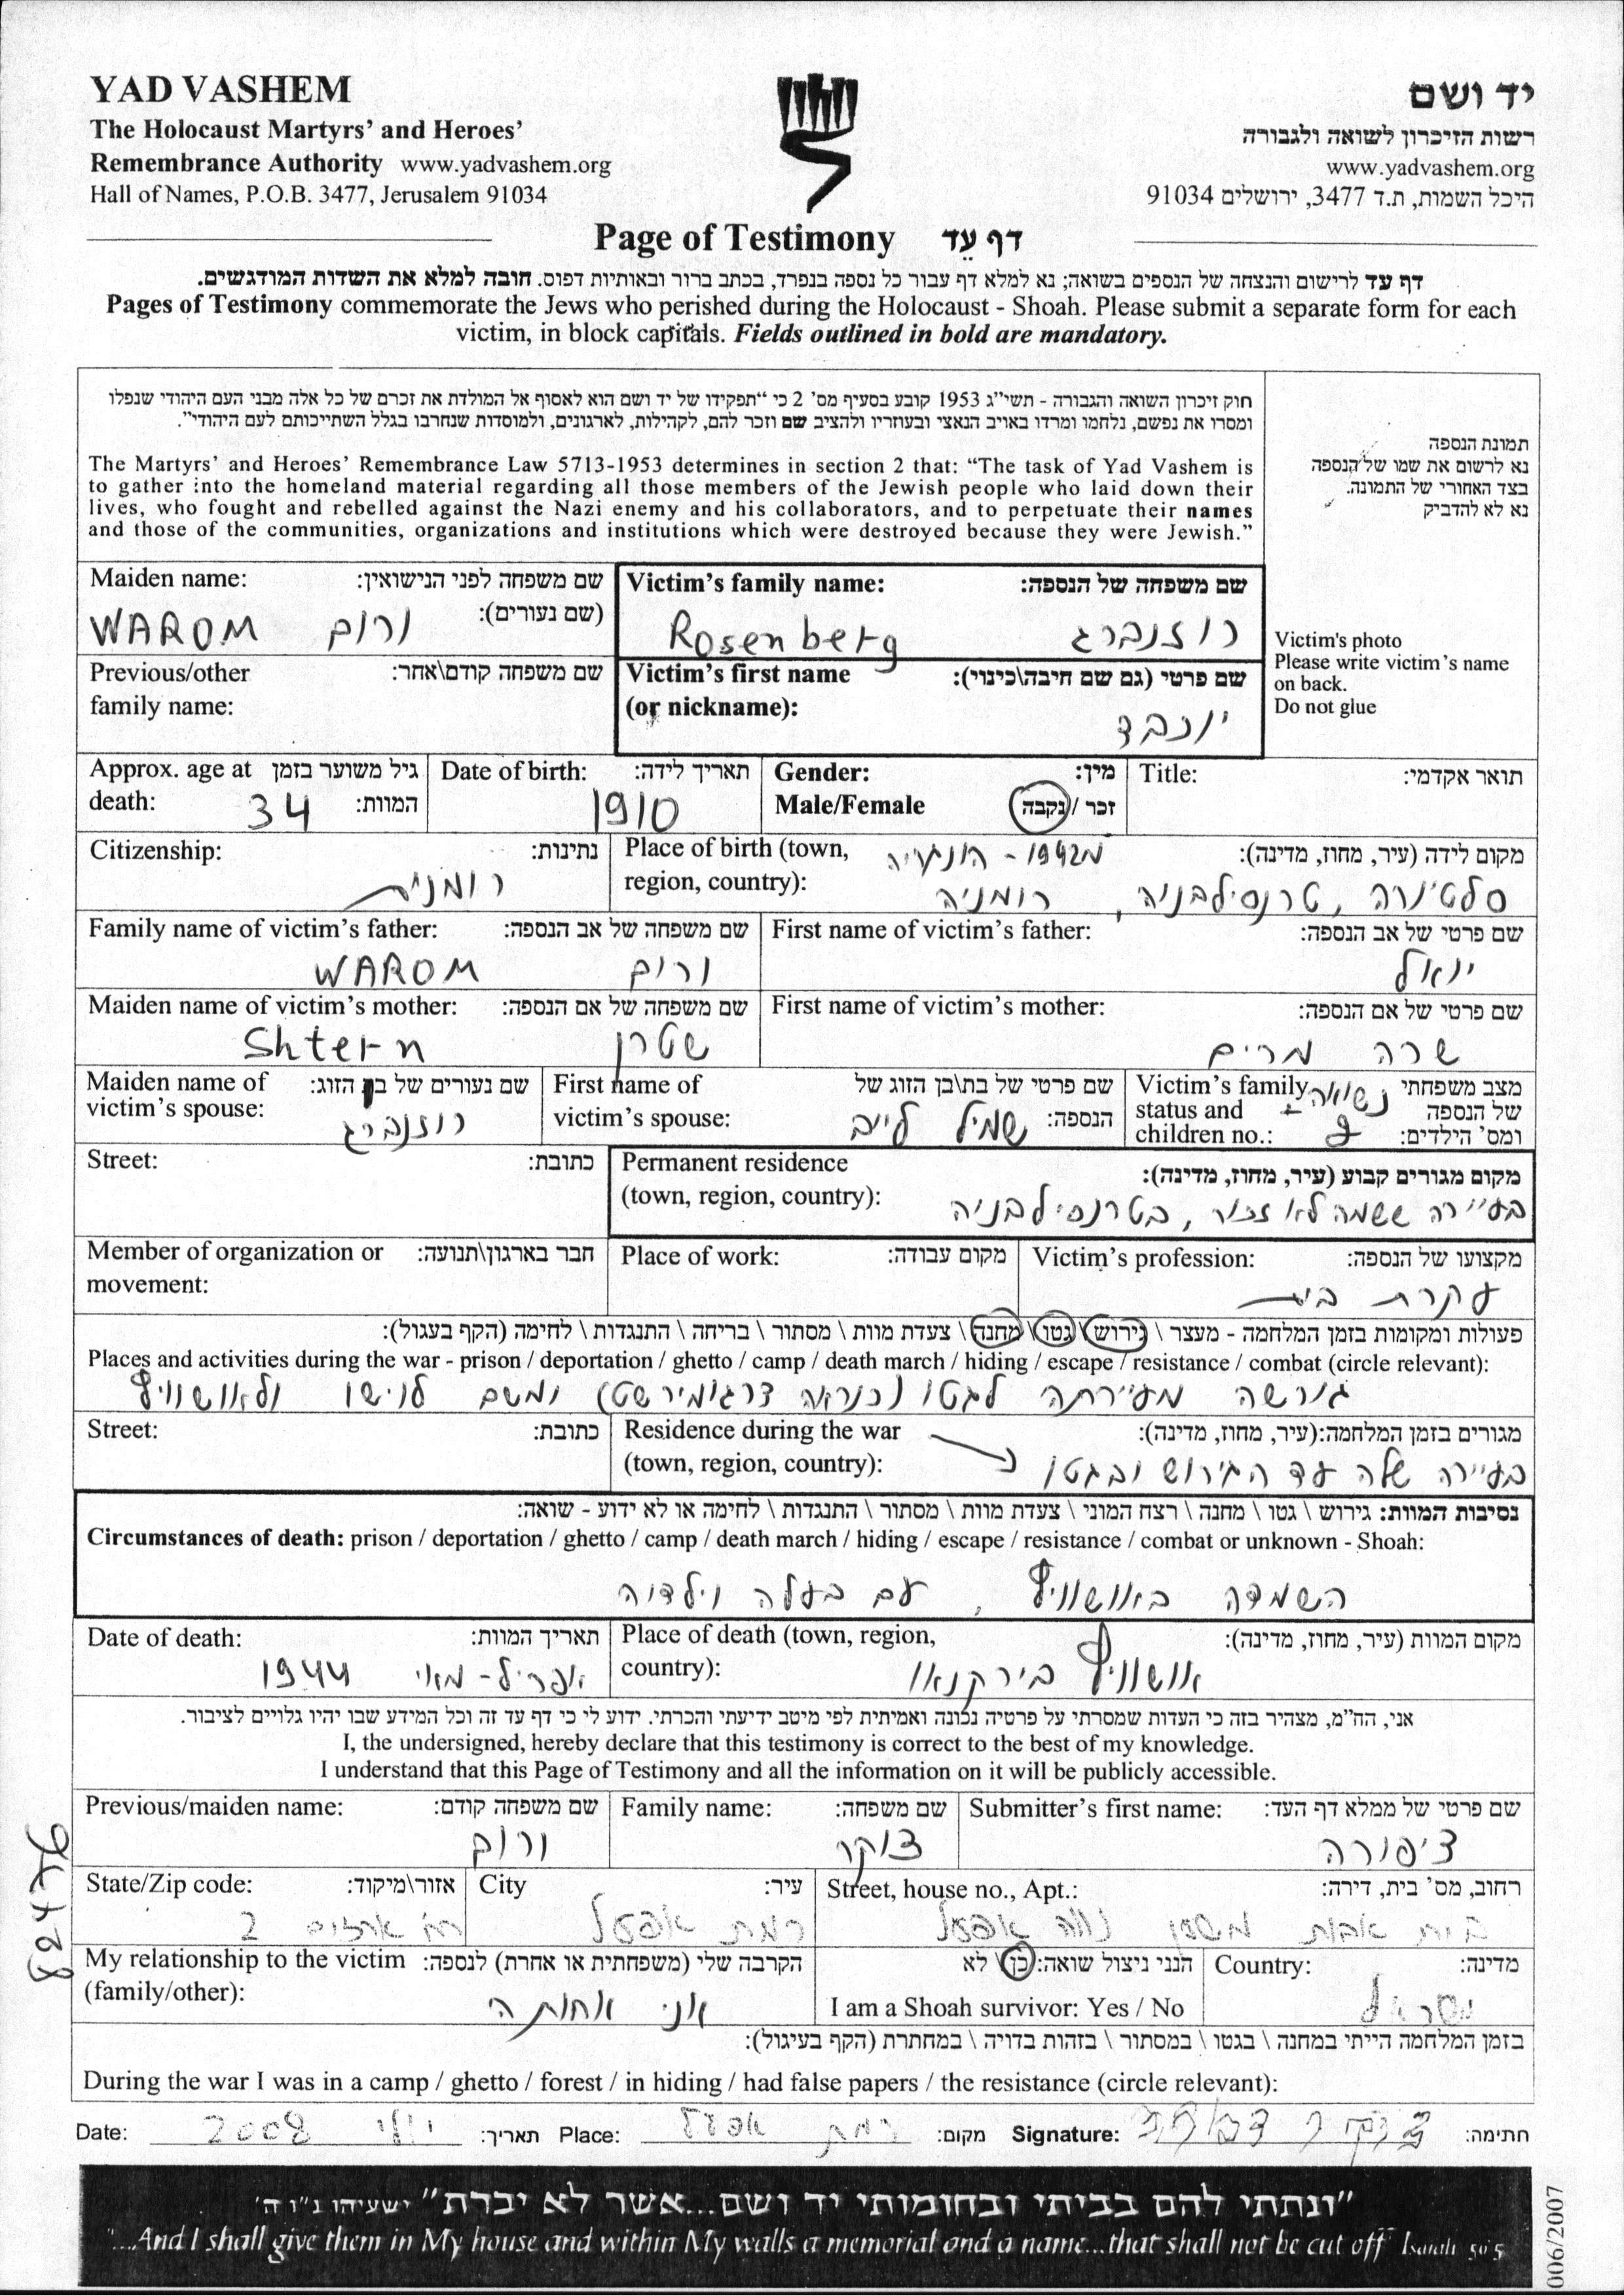 YAD VASHEM
The Holocaust Martyrs' and Heroes'
Remembrance Authority www.yadvashem.org
Hall of Names, P.O.B. 3477, Jerusalem 91034
יד ושם
רשות הזיכרון לשואה ולגבורה
www.yadvashem.org
היכל השמות, ת.ד 3477, ירושלים 91034
Page of Testimony דף עֵד
דף עד לרישום והנצחה של הנספים בשואה; נא למלא דף עבור כל נספה בנפרד, בכתב ברור ובאותיות דפוס. חובה למלא את השדות המודגשים.
Pages of Testimony commemorate the Jews who perished during the Holocaust - Shoah. Please submit a separate form for each
victim, in block capitals. Fields outlined in bold are mandatory.
חוק זיכרון השואה והגבורה - תשי"ג 1953 קובע בסעיף מס' 2 כי "תפקידו של יד ושם הוא לאסוף אל המולדת את זכרם של כל אלה מבני העם היהודי שנפלו
ומסרו את נפשם, נלחמו ומרדו באויב הנאצי ובעוזריו ולהציב שם וזכר להם, לקהילות, לארגונים, ולמוסדות שנחרבו בגלל השתייכותם לעם היהודי".
The Martyrs' and Heroes' Remembrance Law 5713-1953 determines in section 2 that: "The task of Yad Vashem is
to gather into the homeland material regarding all those members of the Jewish people who laid down their
lives, who fought and rebelled against the Nazi enemy and his collaborators, and to perpetuate their names
and those of the communities, organizations and institutions which were destroyed because they were Jewish."
תמונת הנספה
נא לרשום את שמו של הנספה
בצד האחורי של התמונה.
נא לא להדביק
Victim's photo
Please write victim's name
on back.
Do not glue
Maiden name: שם משפחה לפני הנישואין:
(שם נעורים):
WAROM ורום
Victim's family name: שם משפחה של הנספה:
Rosenberg רוזנברג
Previous/other שם משפחה קודם\אחר:
family name:
Victim's first name שם פרטי (גם שם חיבה\כינוי):
(or nickname):
יוכבד
Approx. age at גיל משוער בזמן
death: 34 המוות:
Date of birth: תאריך לידה:
1910
Gender: מין:
Male/Female זכר / נקבה
Title: תואר אקדמי:
Citizenship: נתינות:
רומנית
Place of birth (town, מקום לידה (עיר, מחוז, מדינה):
region, country):
מ1942 - הונגריה
סלטינרה, טרנסילבניה, רומניה
Family name of victim's father: שם משפחה של אב הנספה:
WAROM ורום
First name of victim's father: שם פרטי של אב הנספה:
יואל
Maiden name of victim's mother: שם משפחה של אם הנספה:
Shtern שטרן
First name of victim's mother: שם פרטי של אם הנספה:
שרה מרים
Maiden name of שם נעורים של בן הזוג:
victim's spouse: רוזנברג
First name of שם פרטי של בת\בן הזוג של
victim's spouse: הנספה:
שמיל לייב
Victim's family מצב משפחתי
status and של הנספה
children no.: ומס' הילדים:
נשואה +
2
Street: כתובת:
Permanent residence מקום מגורים קבוע (עיר, מחוז, מדינה):
(town, region, country):
בעיירה ששמה לא זכור, בטרנסילבניה
Member of organization or חבר בארגון\תנועה:
movement:
Place of work: מקום עבודה:
Victim's profession: מקצועו של הנספה:
עקרת בית
פעולות ומקומות בזמן המלחמה - מעצר \ גירוש \ גטו \ מחנה \ צעדת מוות \ מסתור \ בריחה \ התנגדות \ לחימה (הקף בעגול):
Places and activities during the war - prison / deportation / ghetto / camp / death march / hiding / escape / resistance / combat (circle relevant):
גורשה מעיירתה לגטו (כנראה דרגומירשט) ומשם לוישו ולאושוויץ
Street: כתובת:
Residence during the war מגורים בזמן המלחמה:(עיר, מחוז, מדינה):
(town, region, country):
בעיירה שלה עד הגירוש ובגטו
נסיבות המוות: גירוש \ גטו \ מחנה \ רצח המוני \ צעדת מוות \ מסתור \ התנגדות \ לחימה או לא ידוע - שואה:
Circumstances of death: prison / deportation / ghetto / camp / death march / hiding / escape / resistance / combat or unknown - Shoah:
השמדה באושוויץ, עם בעלה וילדיה
Date of death: תאריך המוות:
אפריל-מאי 1944
Place of death (town, region, מקום המוות (עיר, מחוז, מדינה):
country):
אושוויץ בירקנאו
אני, הח"מ, מצהיר בזה כי העדות שמסרתי על פרטיה נכונה ואמיתית לפי מיטב ידיעתי והכרתי. ידוע לי כי דף עד זה וכל המידע שבו יהיו גלויים לציבור.
I, the undersigned, hereby declare that this testimony is correct to the best of my knowledge.
I understand that this Page of Testimony and all the information on it will be publicly accessible.
Previous/maiden name: שם משפחה קודם:
ורום
Family name: שם משפחה:
צוקר
Submitter's first name: שם פרטי של ממלא דף העד:
ציפורה
State/Zip code: אזור\מיקוד:
City עיר:
רמת אפעל
Street, house no., Apt.: רחוב, מס' בית, דירה:
בית אבות משען נווה אפעל
רח' ארזים 2
My relationship to the victim הקרבה שלי (משפחתית או אחרת) לנספה:
(family/other):
אני אחותה
הנני ניצול שואה: כן \ לא
I am a Shoah survivor: Yes / No
Country: מדינה:
ישראל
בזמן המלחמה הייתי במחנה \ בגטו \ במסתור \ בזהות בדויה \ במחתרת (הקף בעיגול):
During the war I was in a camp / ghetto / forest / in hiding / had false papers / the resistance (circle relevant):
Date: יולי 2008 תאריך: Place: רמת אפעל מקום: Signature: צוקר ציפורה חתימה:
"ונתתי להם בביתי ובחומותי יד ושם...אשר לא יכרת" ישעיהו נ"ו ה'
"...And I shall give them in My house and within My walls a memorial and a name...that shall not be cut off" Isaiah 56:5
82476
006/2007